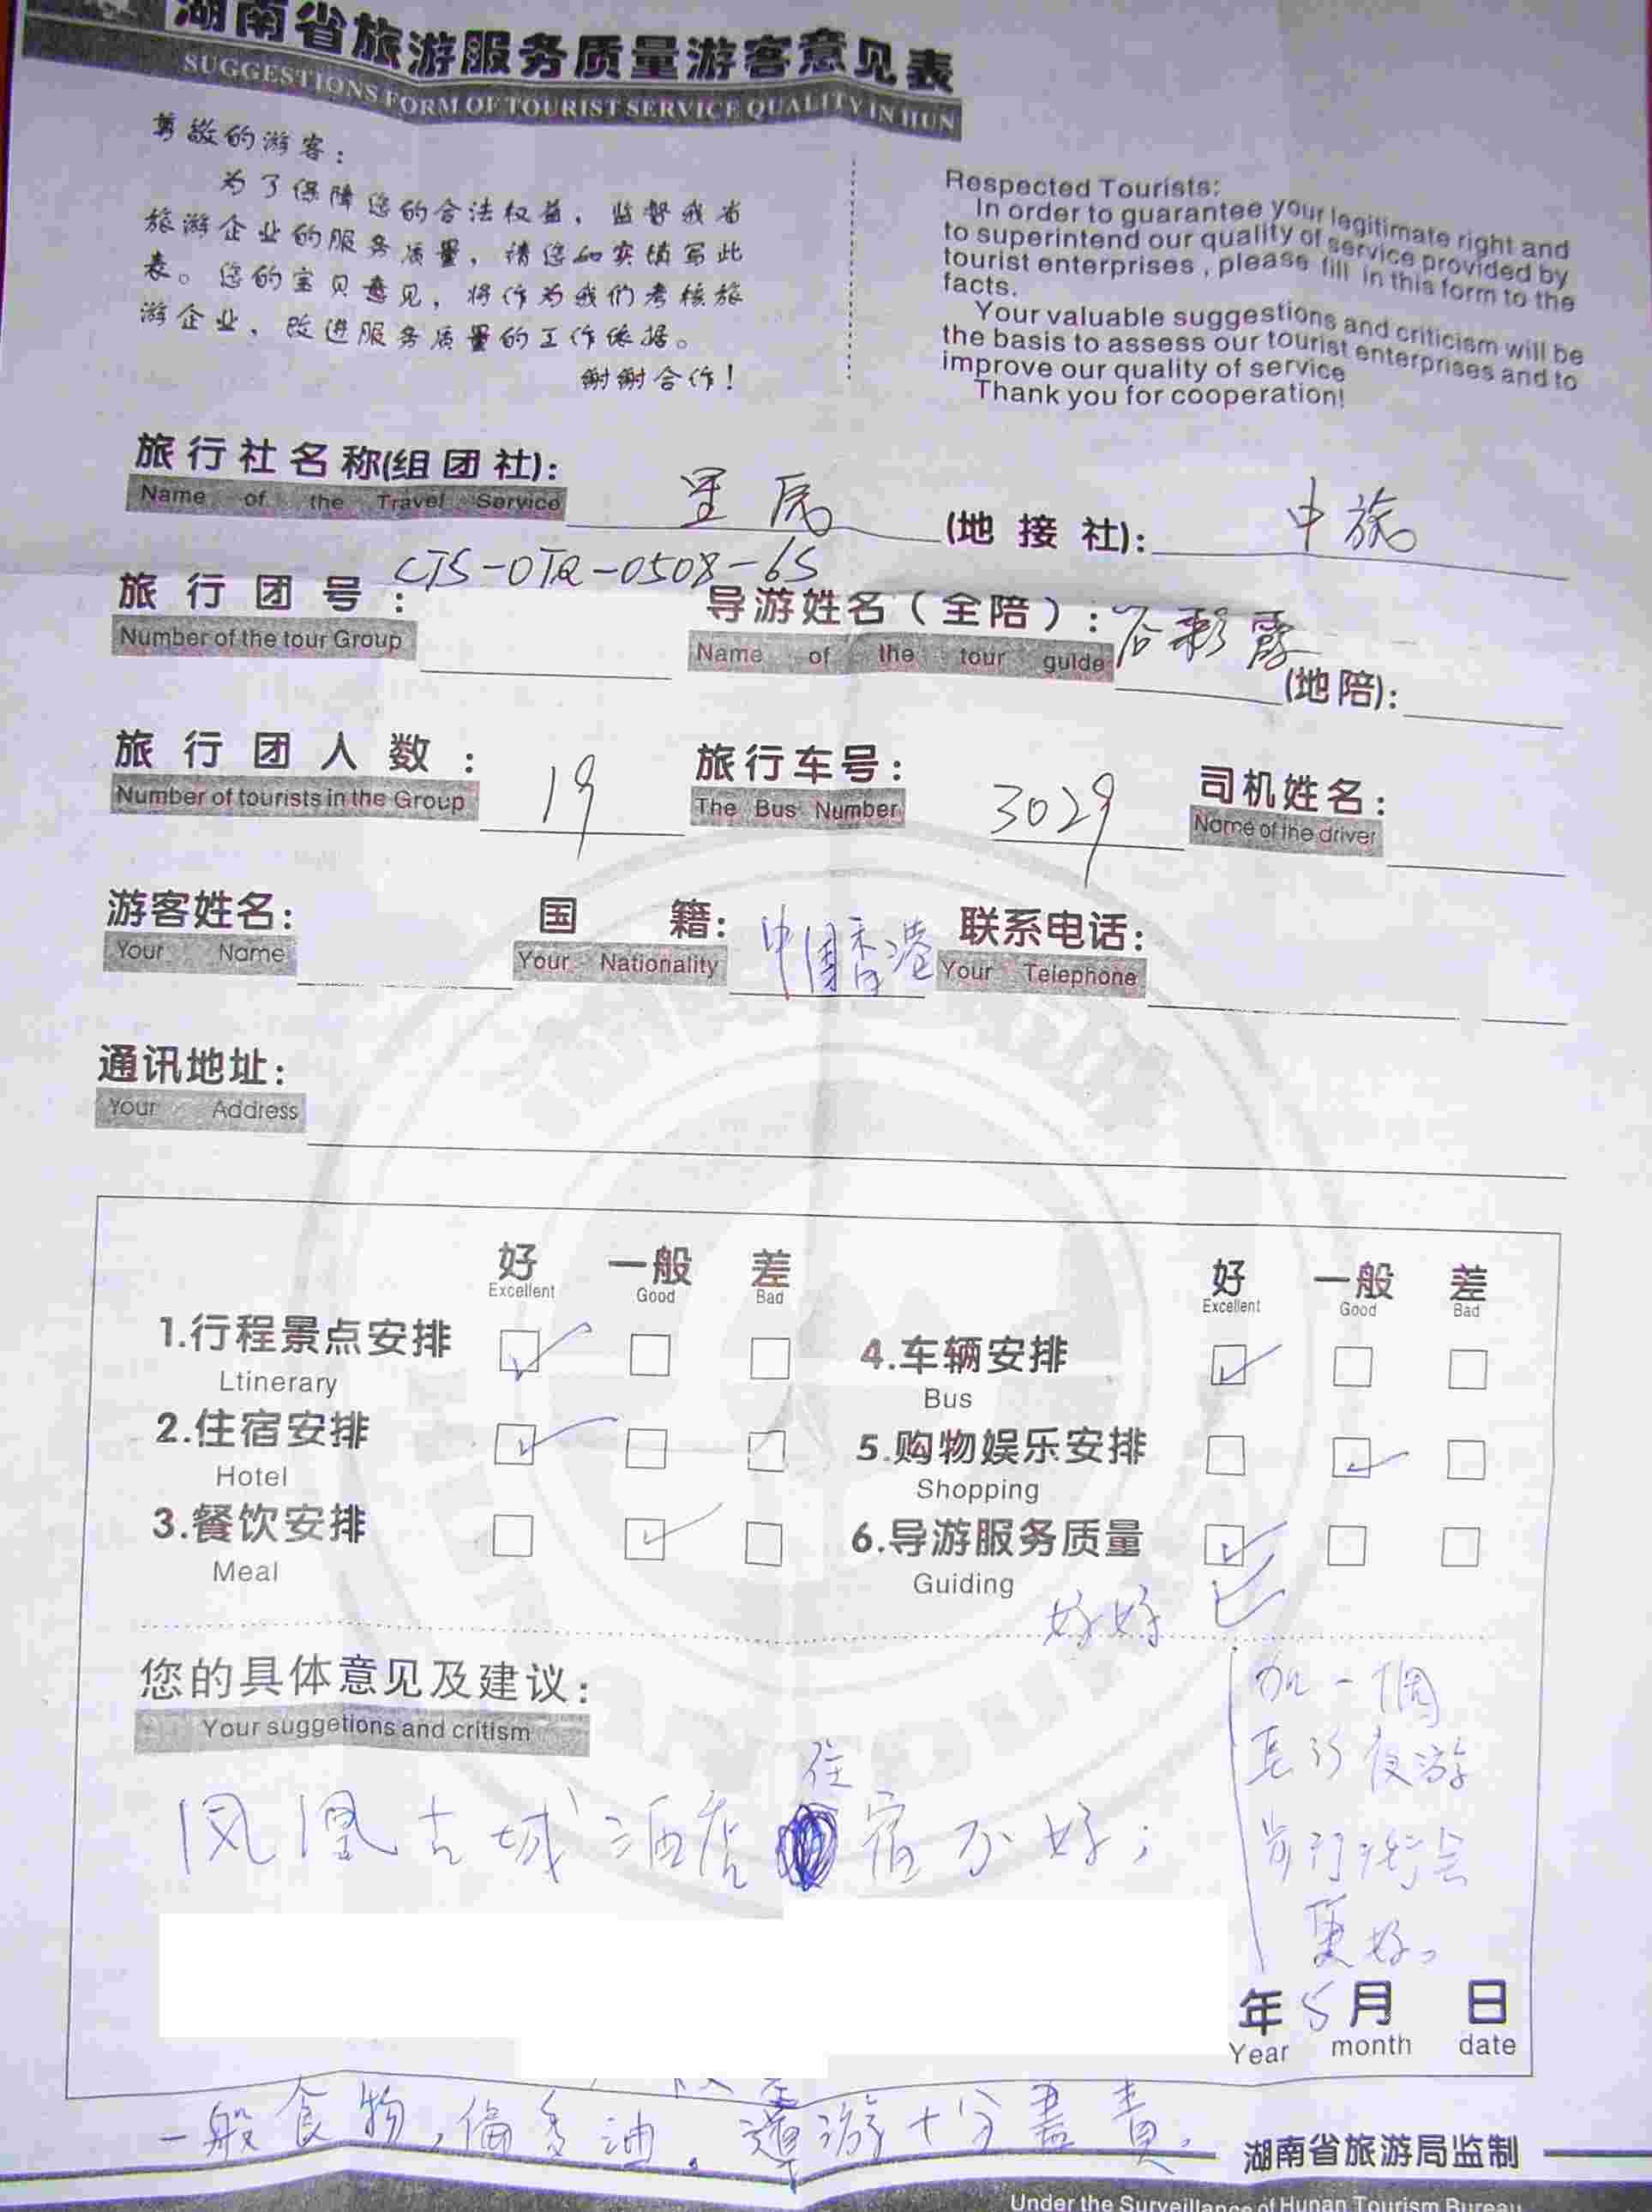 湖南省旅游服务质量游客意见表
SUGGESTIONS FORM OF TOURIST SERVICE QUALITY IN HUN
尊敬的游客：
为了保障您的合法权益，监督我省
旅游企业的服务质量，请您如实填写此
表。您的宝贝意见，将作为我们考核旅
游企业、改进服务质量的工作依据。
谢谢合作！
Respected Tourists:
In order to guarantee your legitimate right and
to superintend our quality of service provided by
tourist enterprises, please fill in this form to the
facts.
Your valuable suggestions and criticism will be
the basis to assess our tourist enterprises and to
improve our quality of service
Thank you for cooperation!
旅行社名称(组团社)： (地接社)： 中旅
Name of the Travel Service
CTS-OTQ-0508-6S
旅行团号： 导游姓名（全陪）：石彩霞
Number of the tour Group Name of the tour guide (地陪)：
旅行团人数： 19 旅行车号： 3029 司机姓名：
Number of tourists in the Group The Bus Number Name of the driver
游客姓名： 国籍： 中国香港 联系电话：
Your Name Your Nationality Your Telephone
通讯地址：
Your Address
好 一般 差 好 一般 差
Excellent Good Bad Excellent Good Bad
1.行程景点安排 4.车辆安排
Ltinerary Bus
2.住宿安排 5.购物娱乐安排
Hotel Shopping
3.餐饮安排 6.导游服务质量
Meal Guiding
好好
您的具体意见及建议：
Your suggetions and critism
住
凤凰古城酒店宿不好；
加一個
夜游
會
更好。
年 5月 日
Year month date
一般食物，偏多油。導游十分盡責。
湖南省旅游局监制
Under the Surveillance of Hunan Tourism Bureau